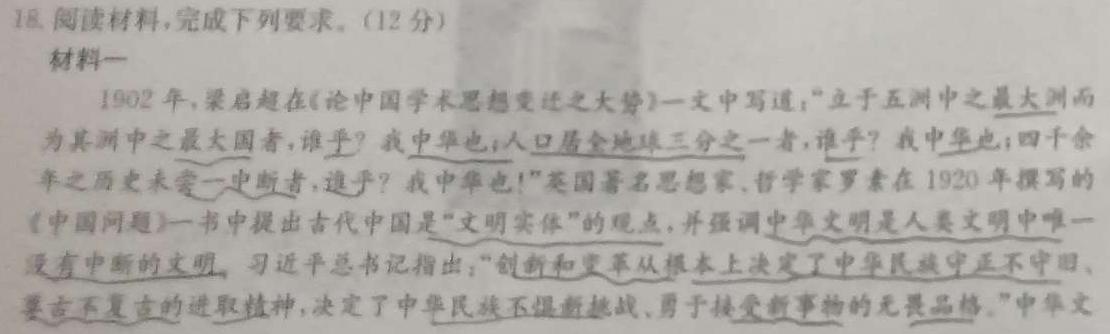 18. 阅读材料,完成下列要求。(12分)
材料一
1902年,梁启超在《论中国学术思想变迁之大势》一文中写道:“立于五洲中之最大洲而
为其洲中之最大国者,谁乎?我中华也;人口居全地球三分之一者,谁乎?我中华也;四千余
年之历史未尝一中断者,谁乎?我中华也!”英国著名思想家、哲学家罗素在1920年撰写的
《中国问题》一书中提出古代中国是“文明实体”的观点,并强调中华文明是人类文明中唯一
没有中断的文明。习近平总书记指出:“创新和变革从根本上决定了中华民族守正不守旧、
尊古不复古的进取精神,决定了中华民族不惧新挑战、勇于接受新事物的无畏品格。”中华文